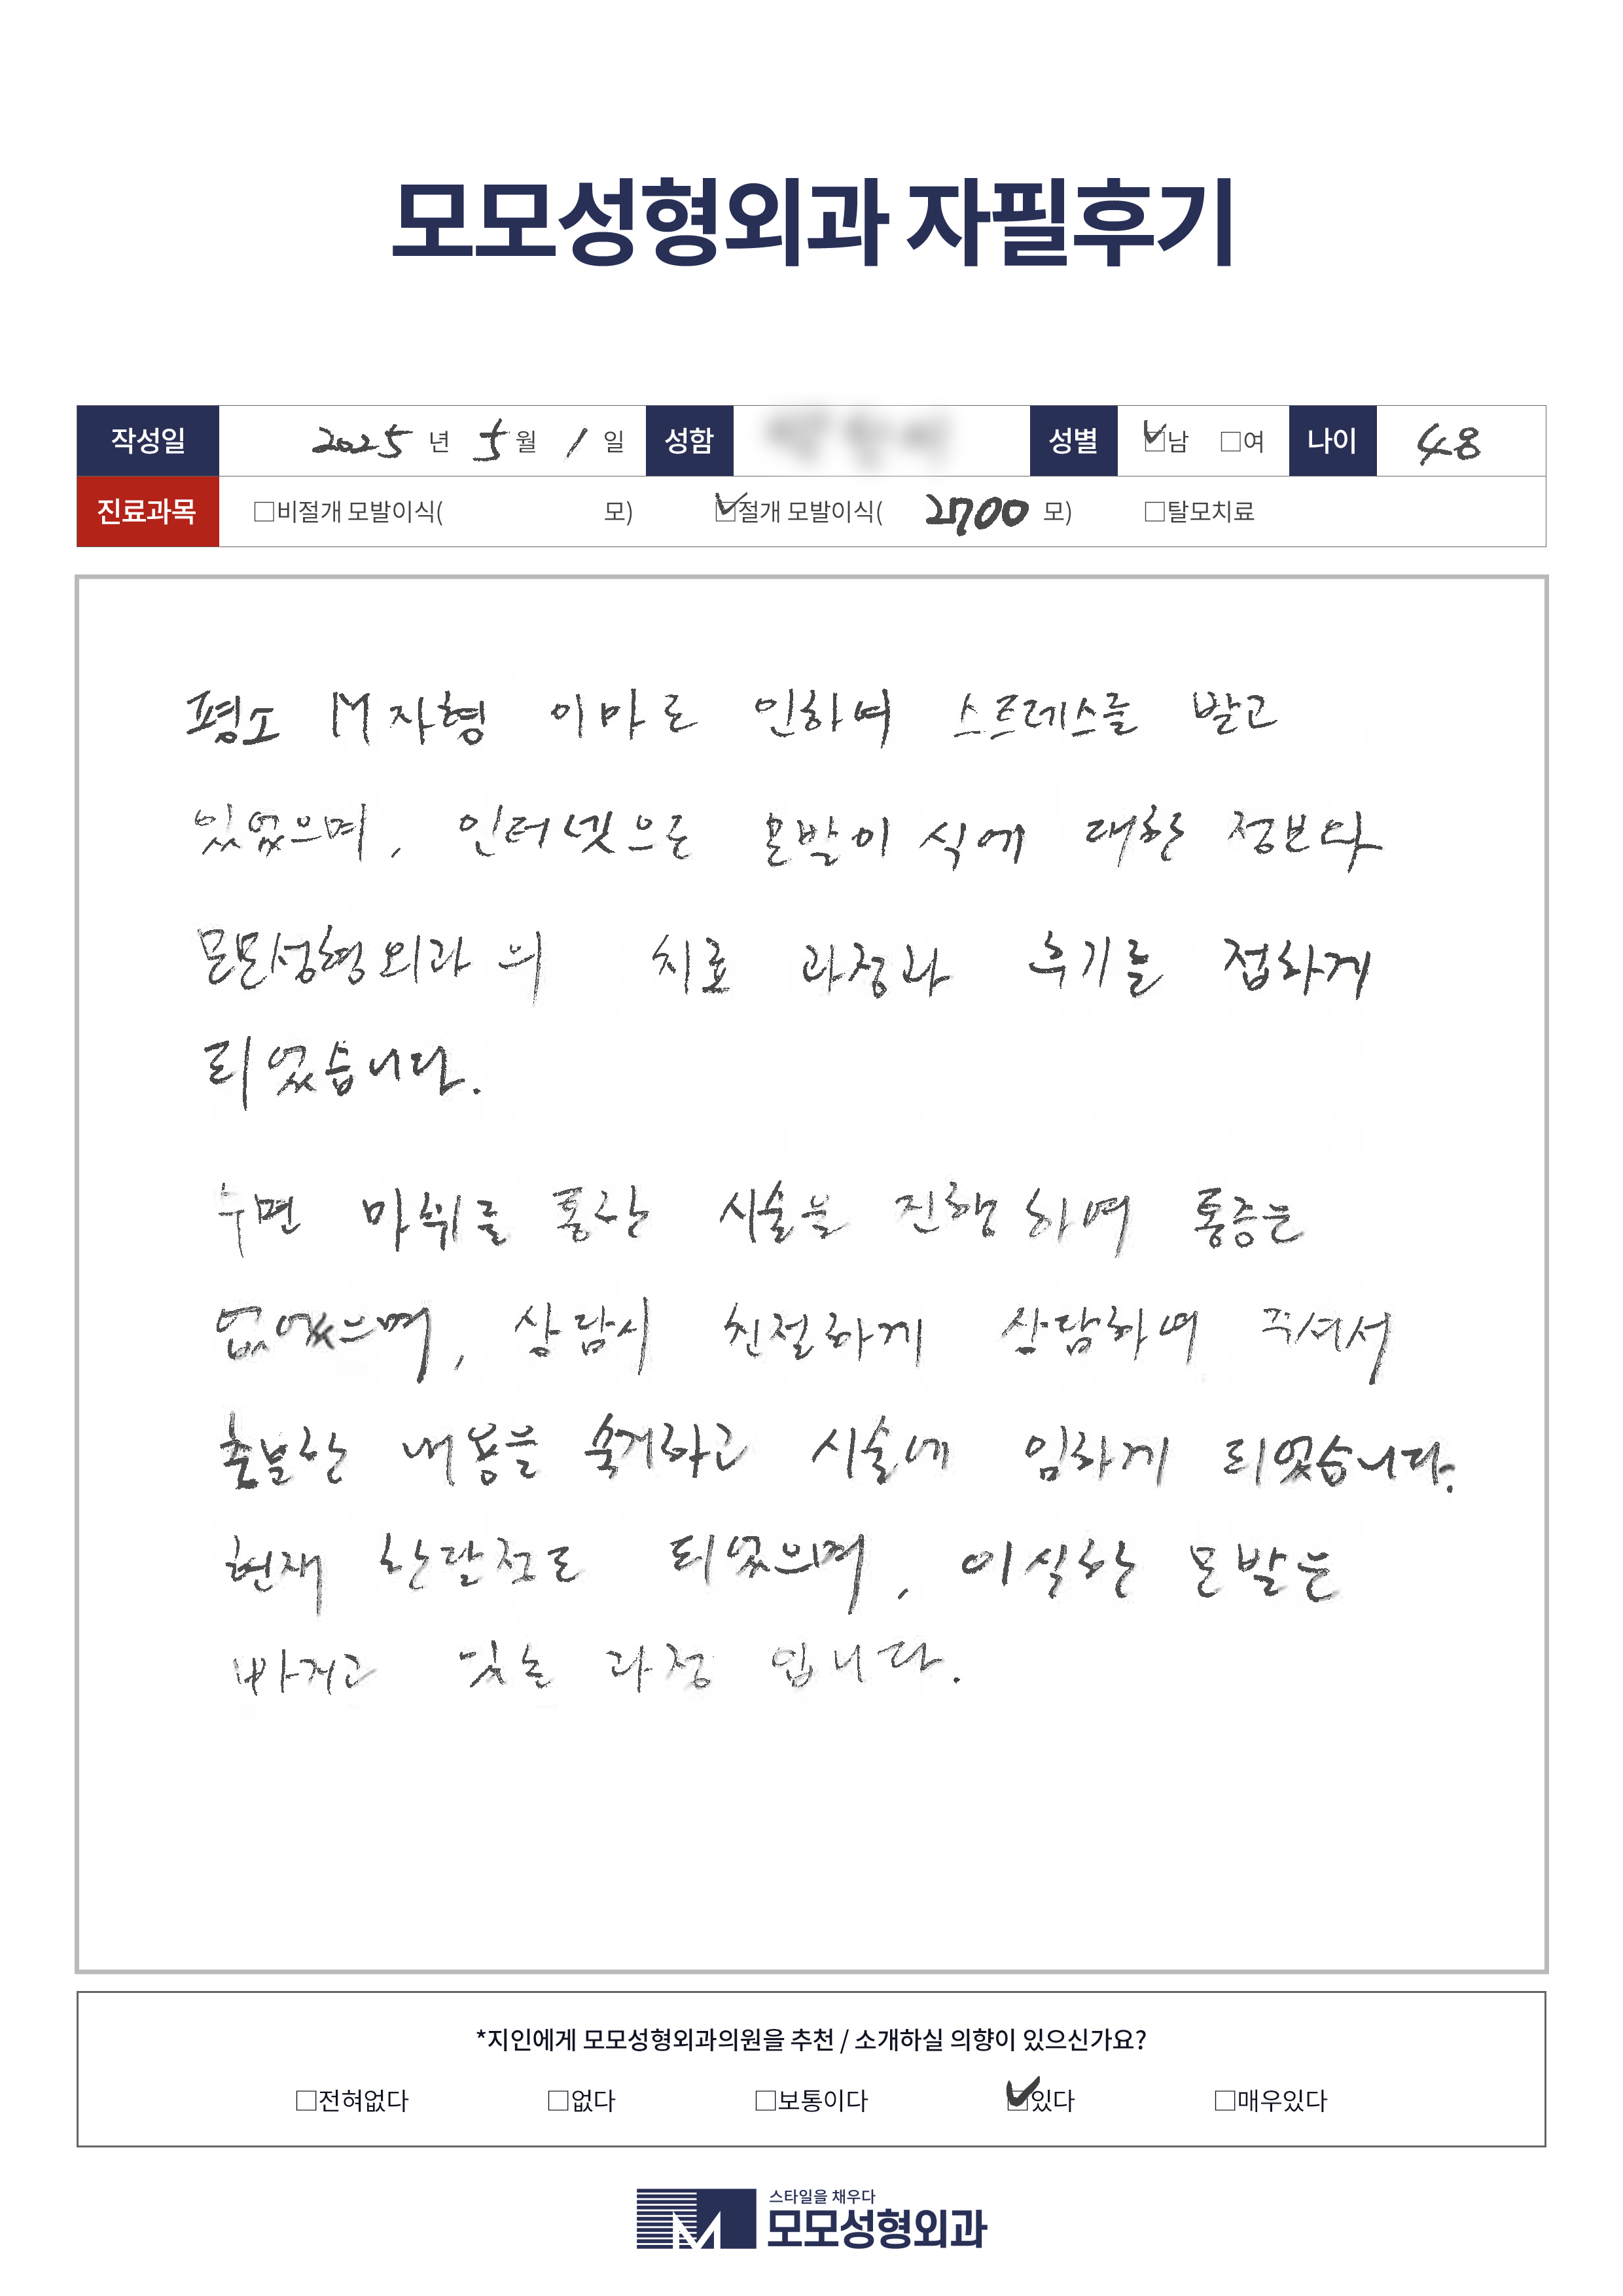 모모성형외과 자필후기
작성일 2025 년 5 월 1 일 성함 성별 ☑남 □여 나이 48
진료과목 □비절개 모발이식( 모) ☑절개 모발이식( 2700 모) □탈모치료
평소 M자형 이마로 인하여 스트레스를 발고
있었으며, 인터넷으로 모발이식에 대한 정보와
모모성형외과의 치료 과정과 후기를 접하게
되었습니다.
수면 마취를 통한 시술을 진행하여 통증은
없었으며, 상담시 친절하게 상담하여 주셔서
충분한 내용을 숙지하고 시술에 임하게 되었습니다.
현재 한달정도 되었으며, 이식한 모발은
빠지고 있는 과정 입니다.
*지인에게 모모성형외과의원을 추천 / 소개하실 의향이 있으신가요?
□전혀없다 □없다 □보통이다 ☑있다 □매우있다
스타일을 채우다
모모성형외과